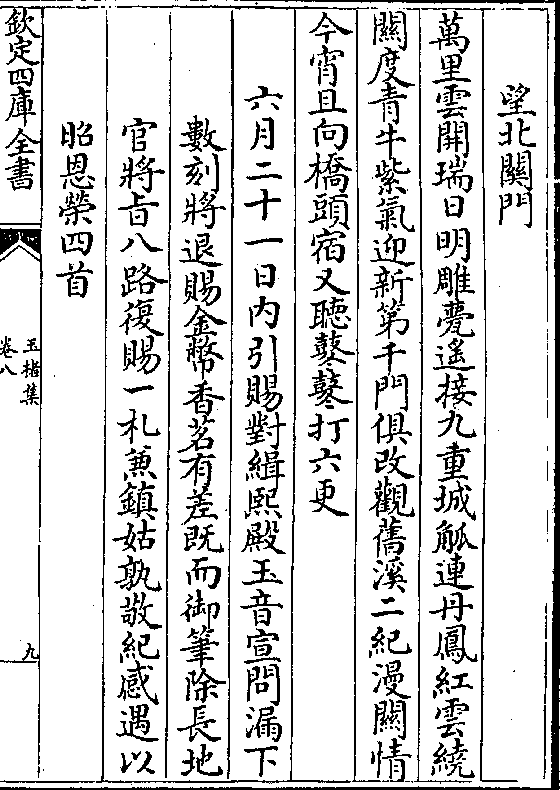 望北關門
萬里雲開瑞日明雕甍遙接九重城觚連丹鳳紅雲繞
關度青牛紫氣迎新第千門俱改觀舊溪二紀漫關情
今宵且向橋頭宿又聽鼕鼕打六更
六月二十一日内引賜對緝熙殿玉音宣問漏下
數刻將退賜金幣香茗有差既而御筆除長地
官將㫖八路復賜一札兼鎮姑孰敬紀感遇以
昭恩榮四首
欽定四庫全書
玉楮集
卷八
九